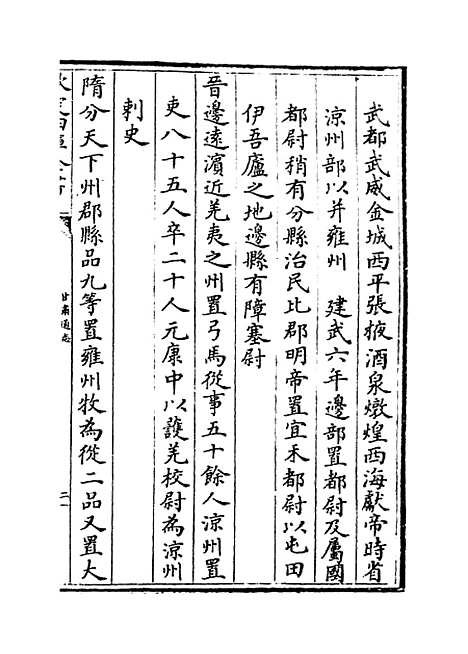 武都武威金城西平張掖酒泉燉煌西海獻帝時省
涼州部以并雍州　建武六年邊部置都尉及屬國
都尉稍有分縣治民比郡明帝置宜禾都尉以屯田
伊吾廬之地邊縣有障塞尉
晉邊遠濵近羌夷之州置弓馬從事五十餘人涼州置
吏八十五人卒二十人元康中以護羌校尉為涼州
刺史
隋分天下州郡縣品九等置雍州牧為從二品又置大
甘肅通志